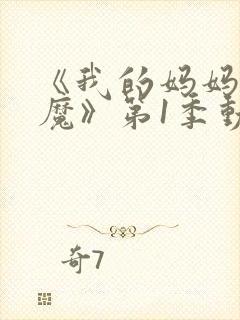 《我的妈妈
魔》第1季動
奇7